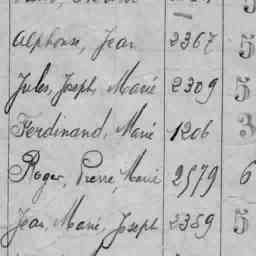 Alphonse, Jean 2367 5
Jules, Joseph, Marie 2309 5
Ferdinand, Marie 1206 3
Roger, Pierre, Marie 2579 6
Jean, Marie, Joseph 2389 5